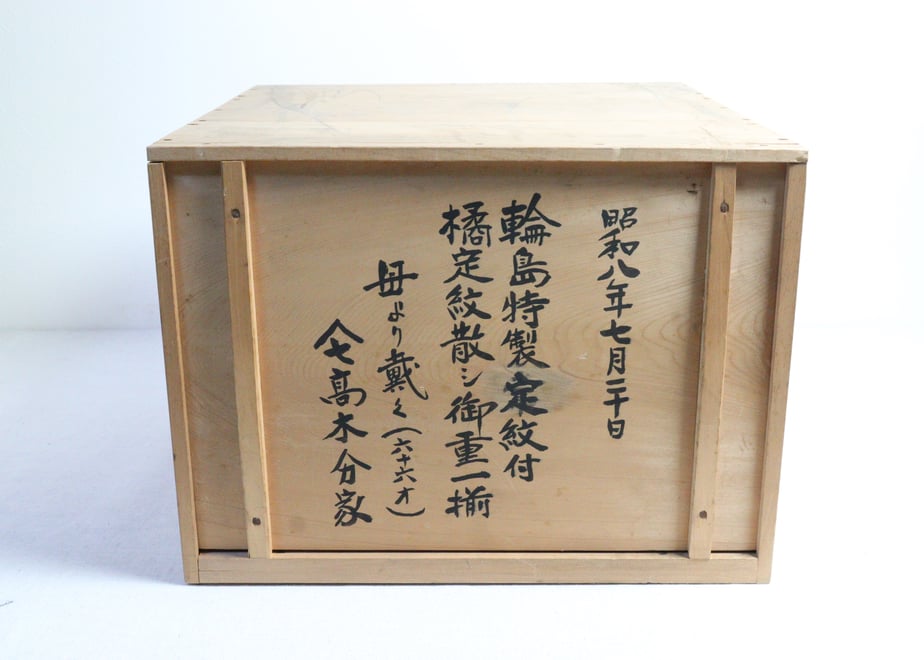 昭和八年七月二十日
輪島特製定紋付
橘定紋散シ御重一揃
母より戴く(六十六才)
仐七高木分家